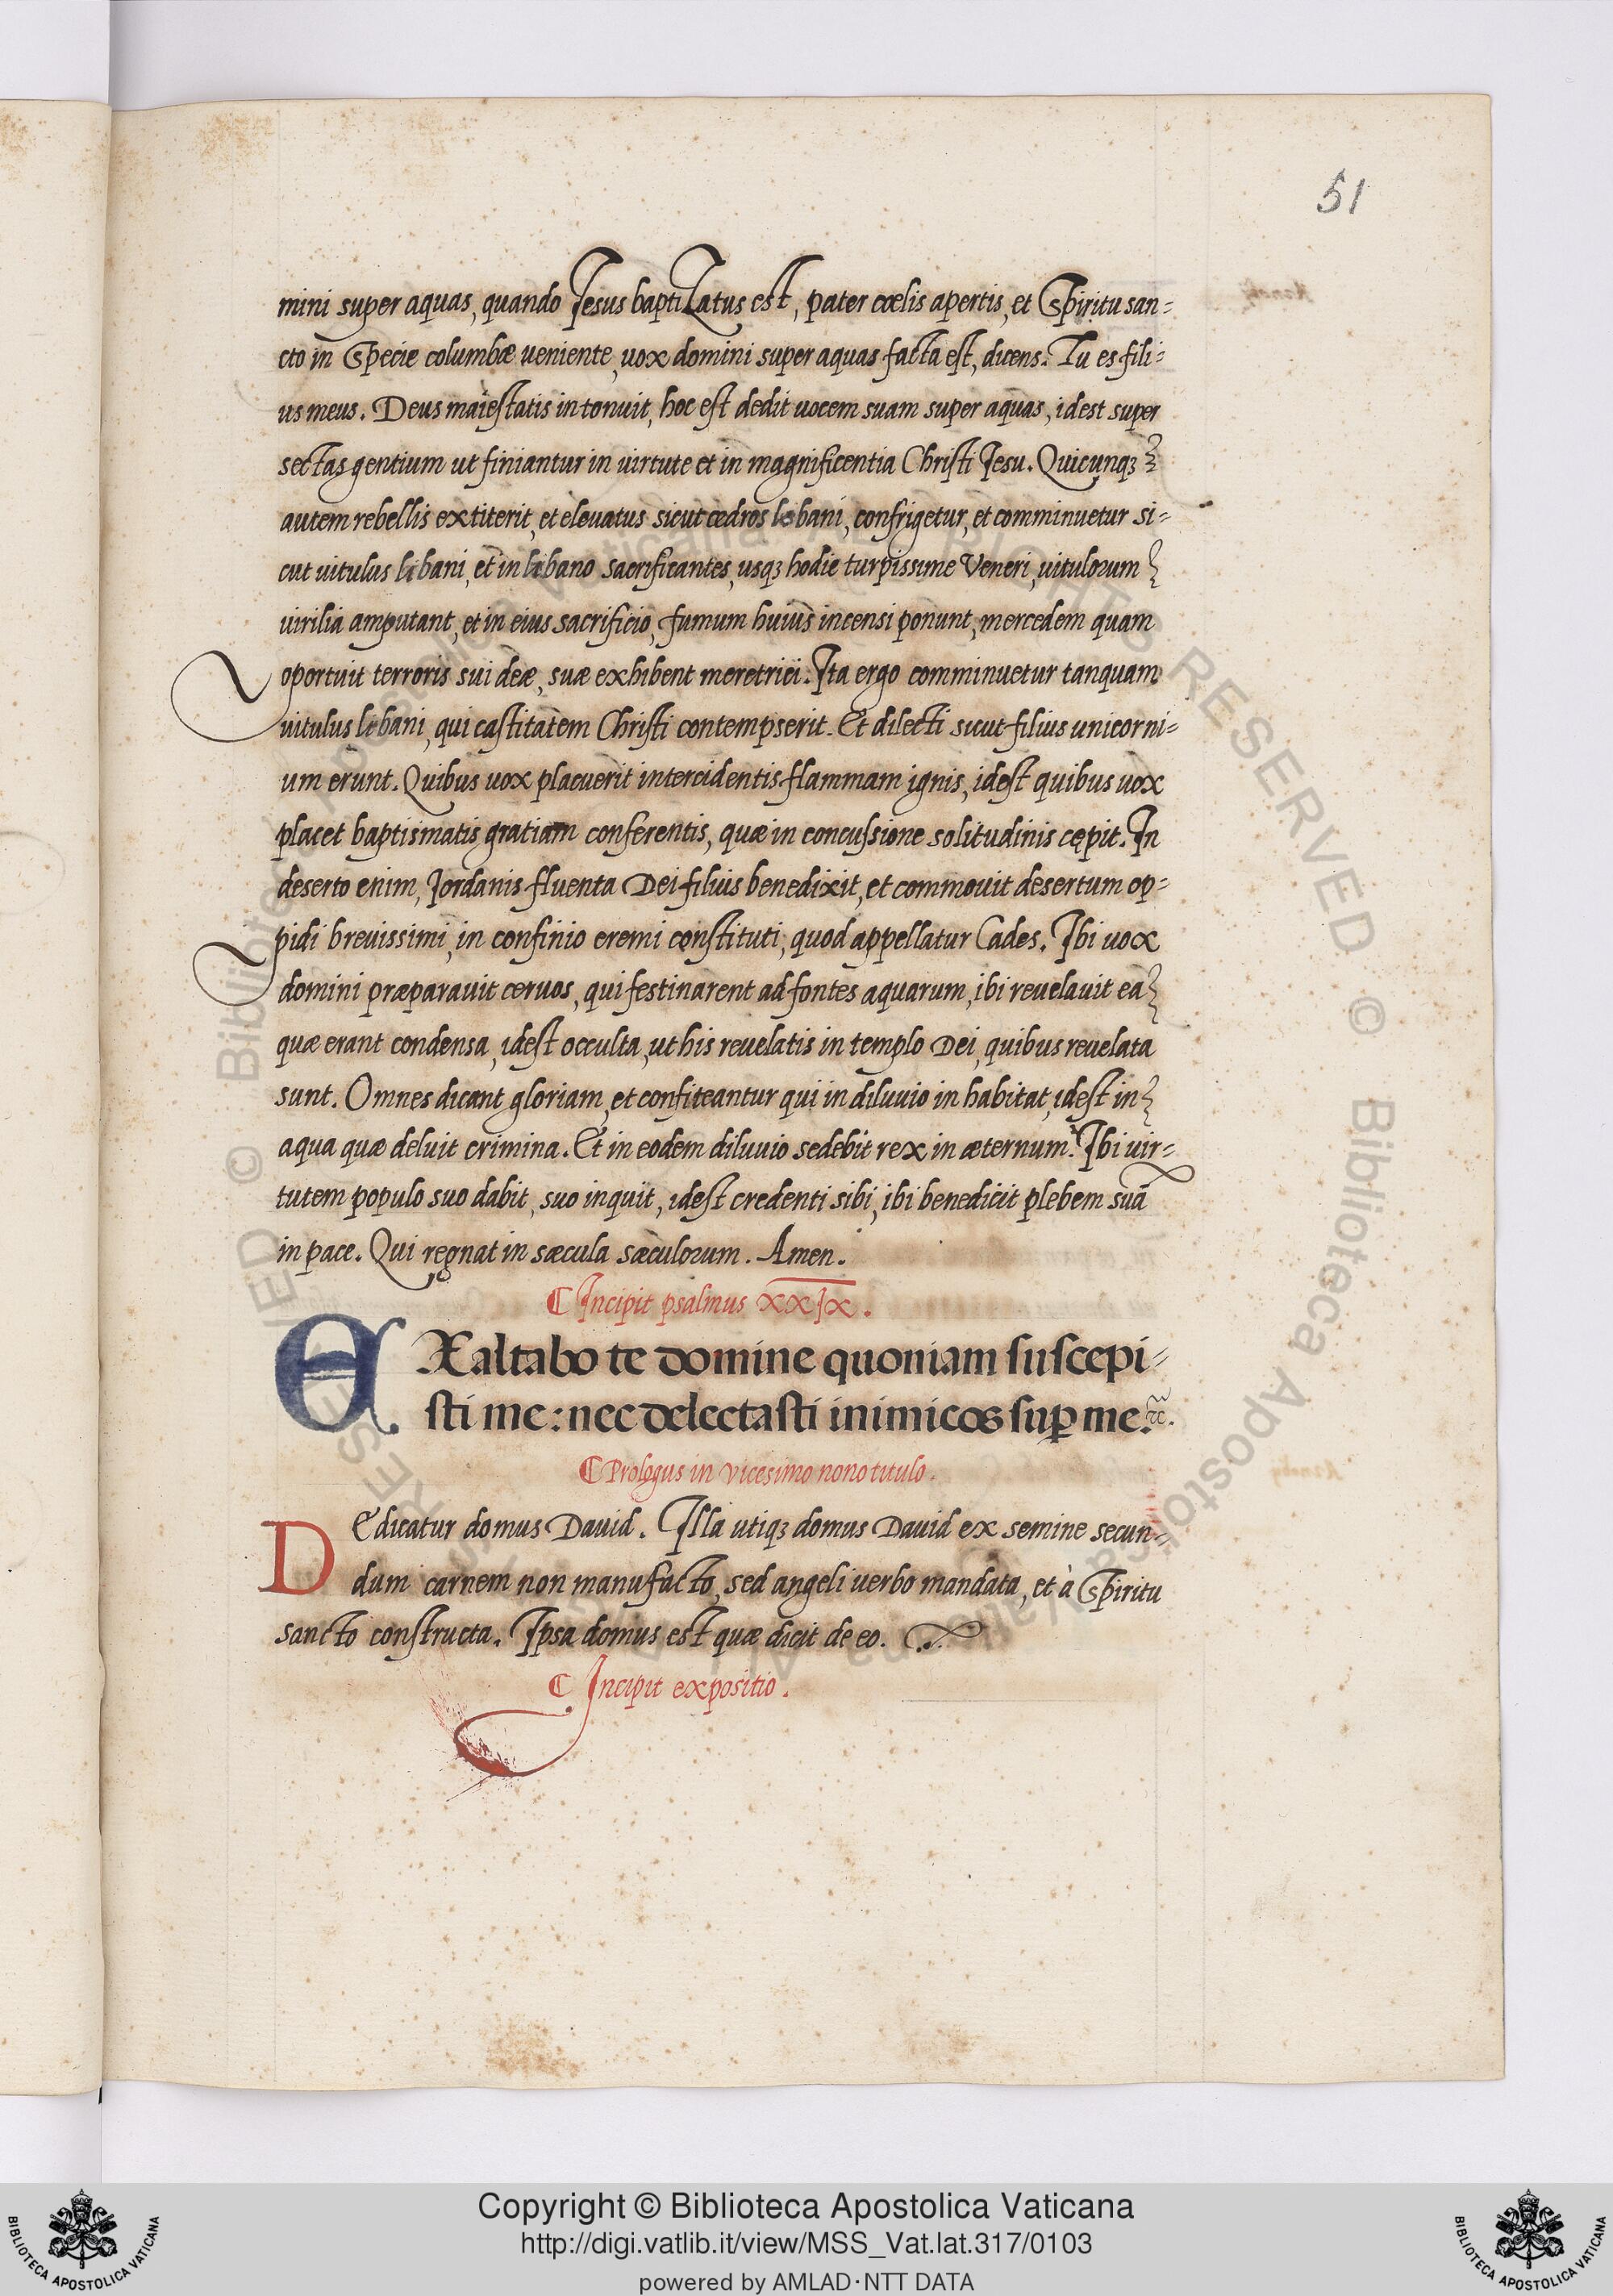 51
mini super aquas, quando Jesus baptiZatus est, pater cœlis apertis, et Spiritu san=
cto in Specie columbæ ueniente, uox domini super aquas facta est, dicens. Tu es fili=
us meus. Deus maiestatis intonuit, hoc est dedit uocem suam super aquas, idest super
sectas gentium ut finiantur in uirtute et in magnificentia Christi Jesu. Quicunqꝫ
autem rebellis extiterit, et eleuatus sicut cedros libani, confrigetur, et comminuetur si=
cut uitulus libani, et in libano sacrificantes, usqꝫ hodie turpissime Veneri, uitulorum
uirilia amputant, et in eius sacrificio, fumum huius incensi ponunt, mercedem quam
oportuit terroris sui deæ, suæ exhibent meretrici. Ita ergo comminuetur tanquam
uitulus libani, qui castitatem Christi contempserit. Et dilecti sicut filius unicorni=
um erunt. Quibus uox placuerit intercidentis flammam ignis, idest quibus uox
placet baptismatis gratiam conferentis, quæ in concussione solitudinis cępit. In
deserto enim, Jordanis fluenta Dei filius benedixit, et commouit desertum op=
pidi breuissimi, in confinio eremi constituti, quod appellatur Cades. Ibi uox
domini præparauit ceruos, qui festinarent ad fontes aquarum, ibi reuelauit ea
quæ erant condensa, idest occulta, ut his reuelatis in templo Dei, quibus reuelata
sunt. Omnes dicant gloriam, et confiteantur qui in diluuio inhabitat, idest in
aqua quæ deluit crimina. Et in eodem diluuio sedebit rex in æternum. Ibi uir=
tutem populo suo dabit, suo inquit, idest credenti sibi, ibi benedicit plebem suā
in pace. Qui regnat in sæcula sæculorum. Amen.
¶ Incipit psalmus XXIX.
EXaltabo te domine quoniam suscepi=
sti me: nec delectasti inimicos suꝑ me. ⁊c.
¶ Prologus in vicesimo nono titulo.
DEdicatur domus Dauid. Illa utiqꝫ domus Dauid ex semine secun=
dum carnem non manufacto, sed angeli uerbo mandata, et à Spiritu
sancto constructa. Ipsa domus est quæ dicit de eo.
¶ Incipit expositio.
© Biblioteca Apostolica Vaticana ALL RIGHTS RESERVED © Biblioteca Apostolica Vaticana ALL RIGHTS RESERVED
Copyright © Biblioteca Apostolica Vaticana
http://digi.vatlib.it/view/MSS_Vat.lat.317/0103
powered by AMLAD·NTT DATA
BIBLIOTECA APOSTOLICA VATICANA
BIBLIOTECA APOSTOLICA VATICANA